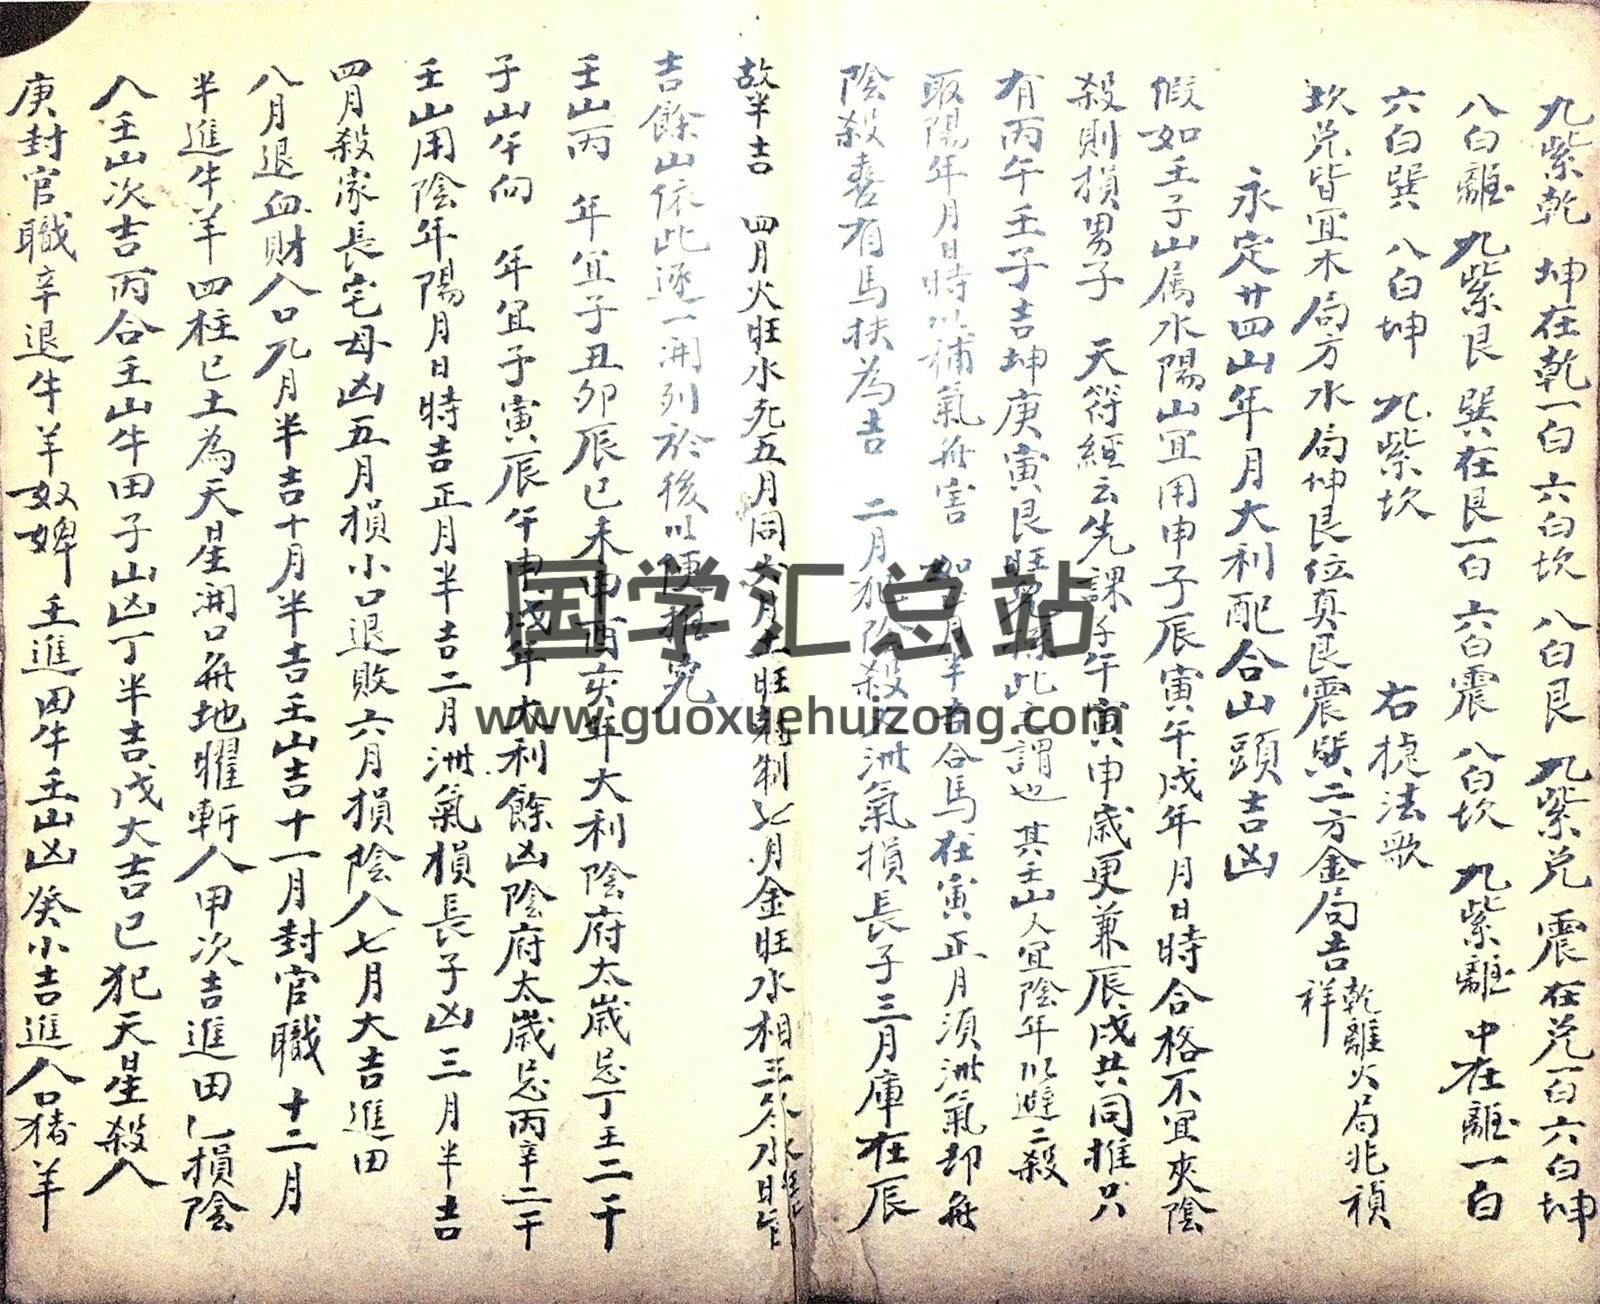 九紫乾 坤在乾一白 六白坎 八白艮 九紫兑 震在兑一白六白坤
八白離 九紫艮 巽在艮一白 六白震 八白坎 九紫離 中在離一白
六白巽 八白坤 九紫坎 右捷法歌
坎兑皆宜木局方水局坤艮位真艮震巽二方金局吉祥 乾離火局兆禎
永定廿四山年月大利配合山頭吉凶
假如壬子山属水陽山宜用申子辰寅午戌年月日時合格不宜夾陰
殺則損男子 天符經云先課子午寅申歲更兼辰戌共同推只
有丙午壬子吉坤庚寅艮旺此之謂也 其壬山人宜陰年以避二殺
取陽年月日時以補氣無害 如正月半吉合馬在寅正月須洩氣却無
陰殺喜有馬扶為吉 二月犯陰殺又洩氣損長子三月庫在辰
故半吉 四月火旺水死五月同六月土旺剋制七月金旺水相
吉餘山依此逐一開列於後以便推究
壬山丙 年宜子丑卯辰巳未申酉亥年大利陰府太歲忌丁壬二干
子山午向 年宜子寅辰午申戌年大利餘凶陰府太歲忌丙辛二干
壬山用陰年陽月日時吉正月半吉二月洩氣損長子凶三月半吉
四月殺家長宅母凶五月損小口退敗六月損陰人七月大吉進田
八月退血財人口九月半吉十月半吉壬山吉十一月封官職十二月
半進牛羊四柱已土為天星開口無地曜斬人甲次吉進田乙損陰
人壬山次吉丙合壬山牛田子山凶丁半吉戊大吉已犯天星殺人
庚封官職辛退牛羊奴婢壬進田牛壬山凶癸小吉進人口猪羊
国学汇总站
www.guoxuehuizong.com